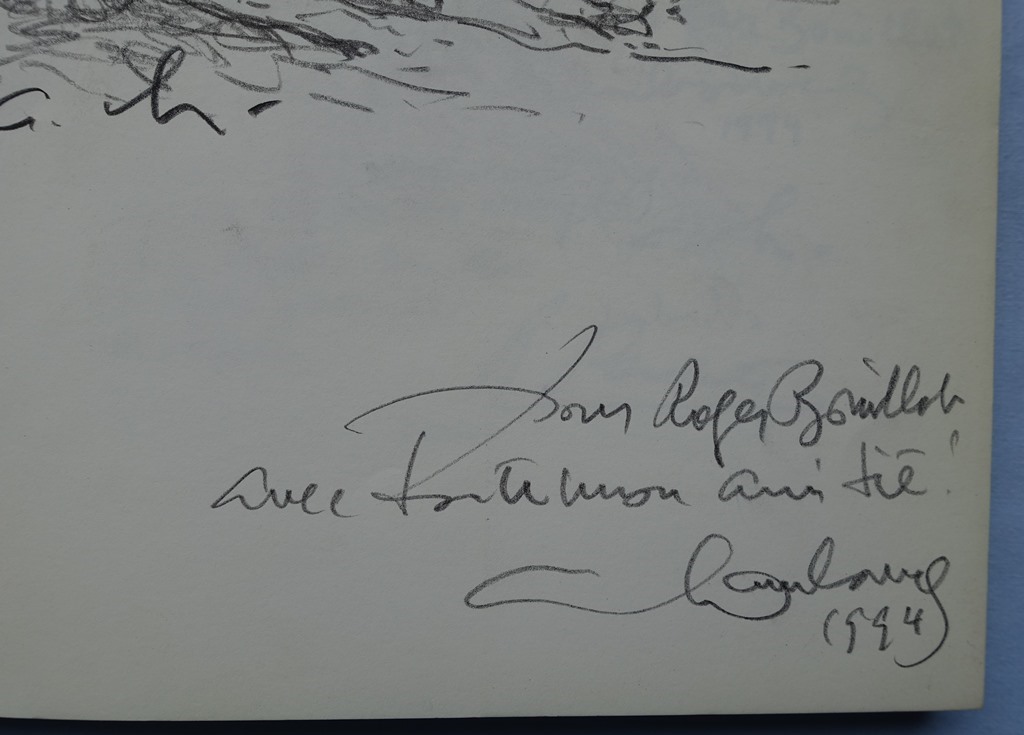 Pour Roger Bouillot
avec toute mon amitié!
1994